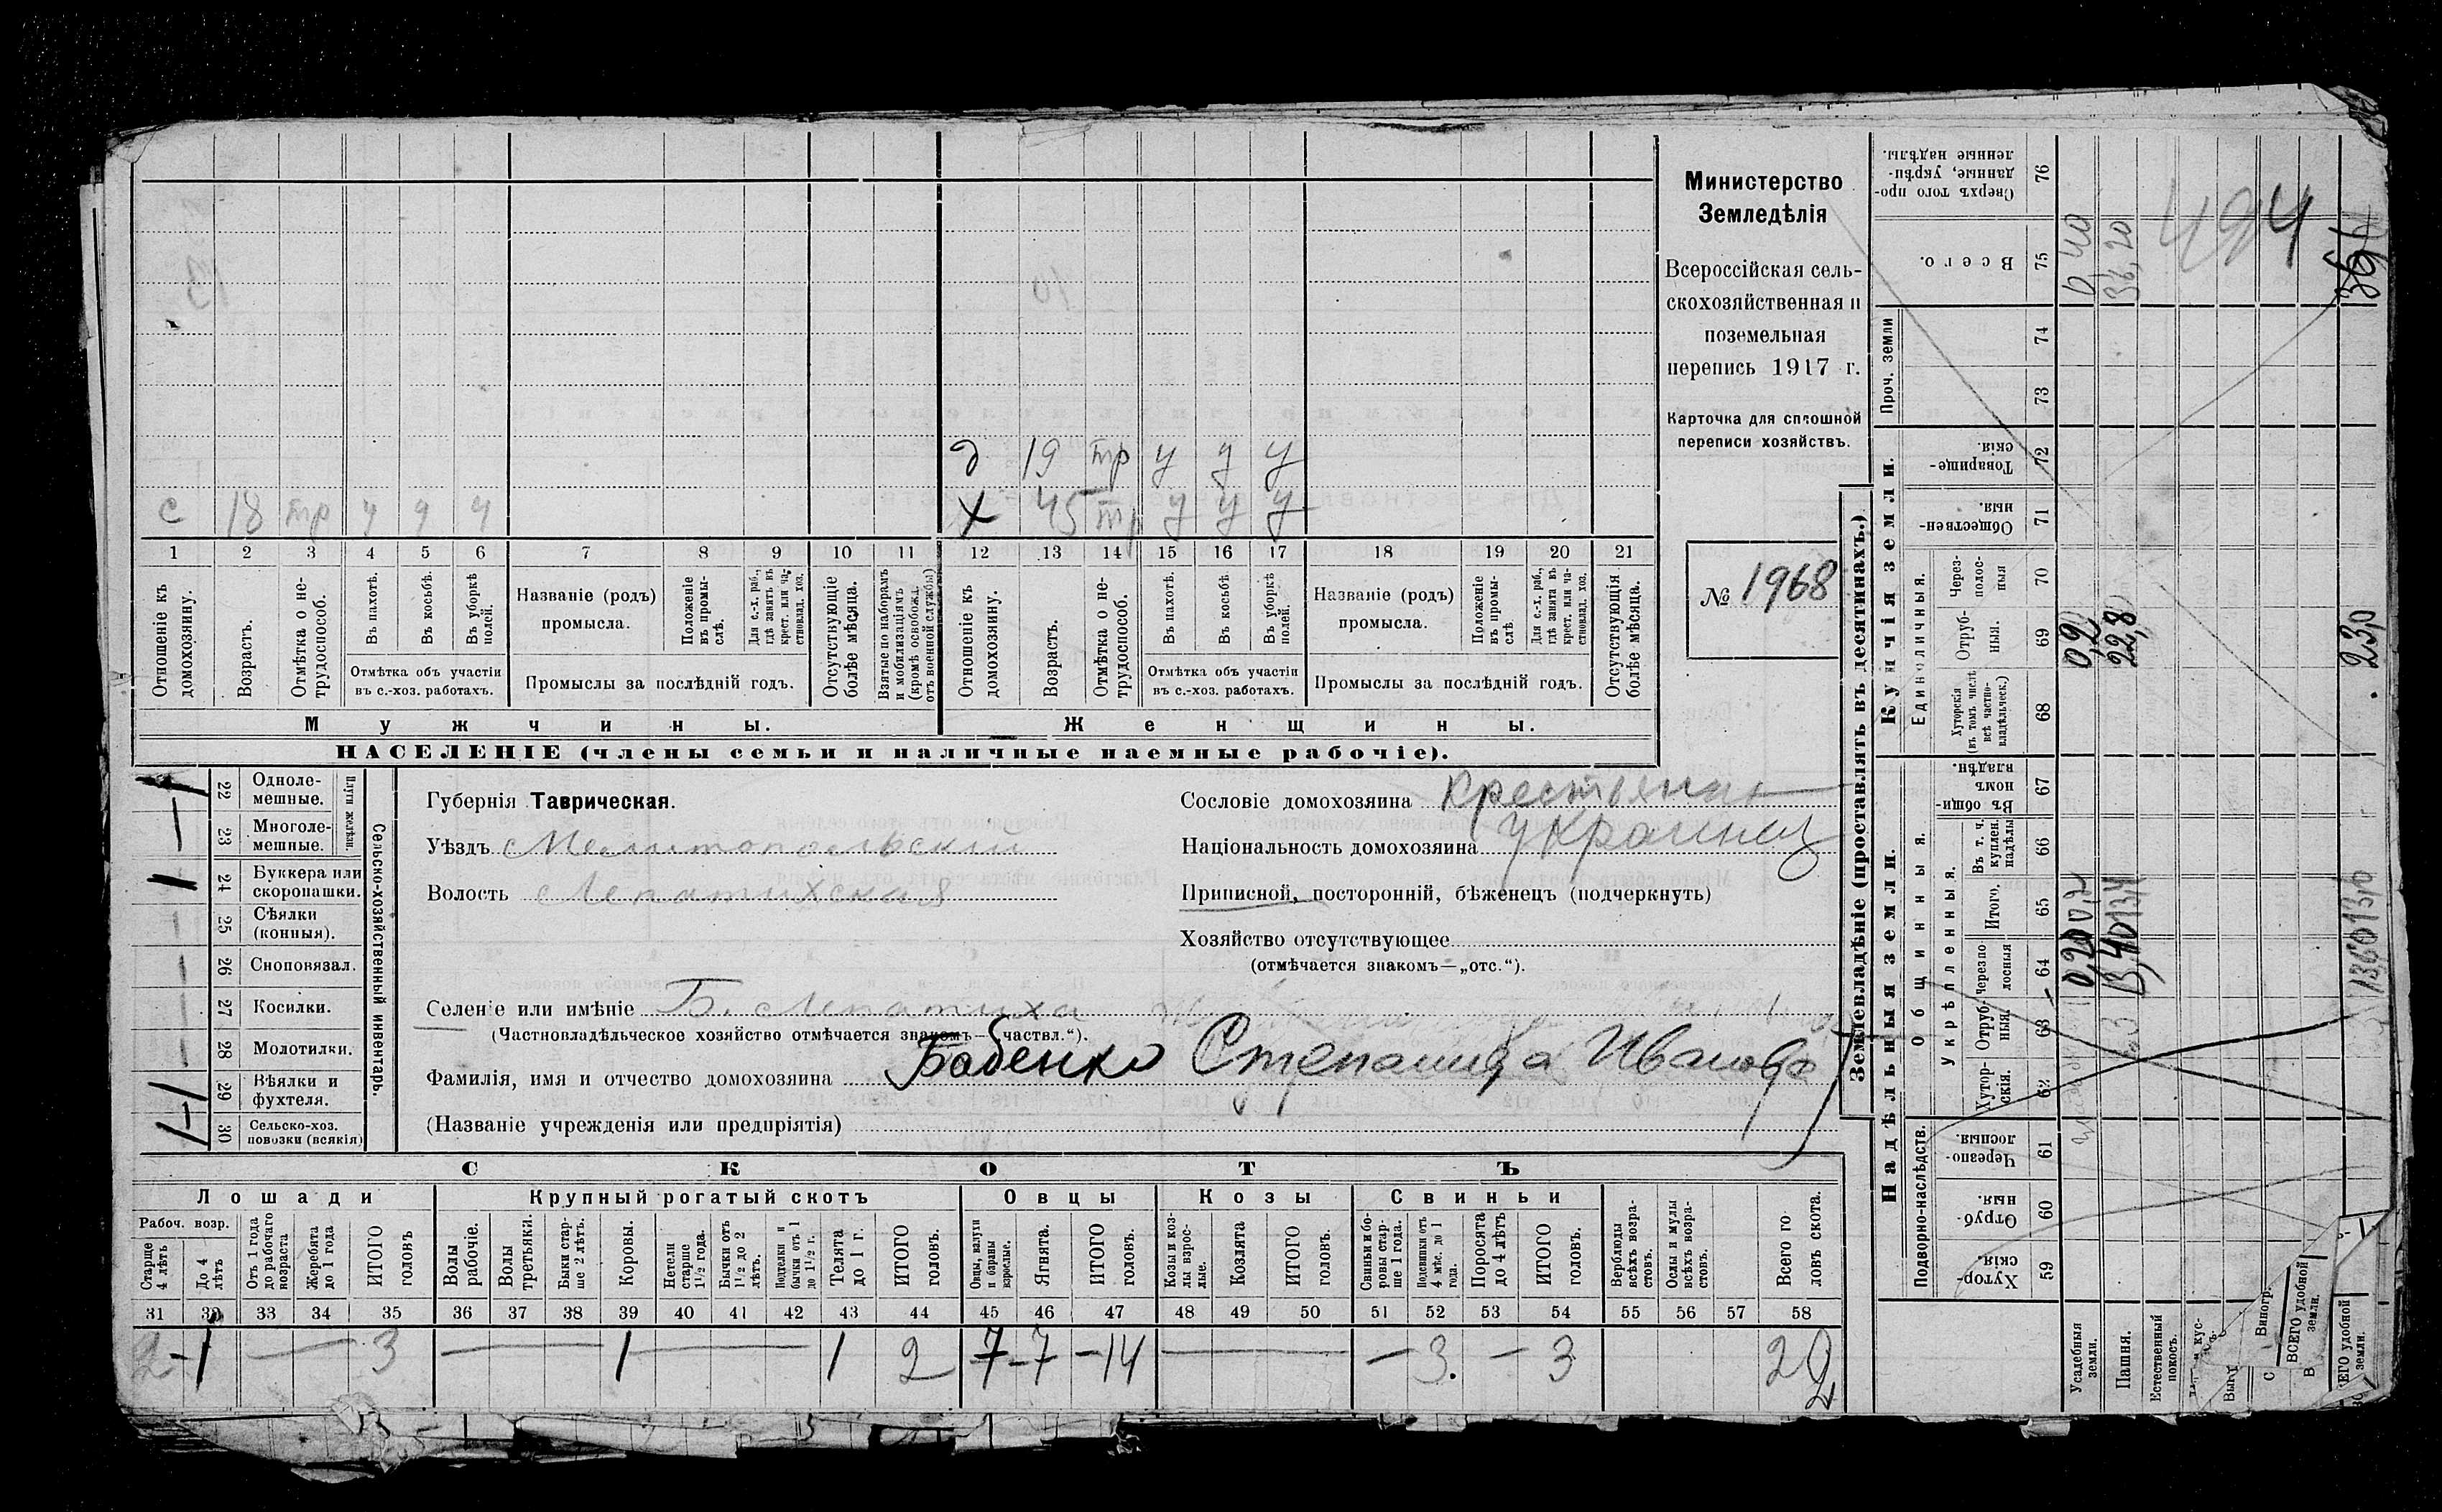 Министерство
Земледѣлія
Всероссійская сель-
скохозяйственная и
поземельная
перепись 1917 г.
Карточка для сплошной
переписи хозяйствъ.
№ 1968
д 19 тр у у у
с 18 тр у у у
х 45 тр у у у
1 2 3 4 5 6 7 8 9 10 11 12 13 14 15 16 17 18 19 20 21
Отношеніе къ домохозяину.
Возрастъ.
Отмѣтка о не-трудоспособ.
Въ пахотѣ.
Въ косьбѣ.
Въ уборкѣ полей.
Отмѣтка объ участіи
въ с.-хоз. работахъ.
Названіе (родъ)
промысла.
Положеніе въ промы-слѣ.
Для с.-х. раб., гдѣ занятъ въ крест. или ча-стновлад. хоз.
Промыслы за послѣдній годъ.
Отсутствующіе болѣе мѣсяца.
Взятые по наборамъ и мобилизаціямъ (кромѣ освобожд. отъ военной службы)
Отношеніе къ домохозяину.
Возрастъ.
Отмѣтка о не-трудоспособ.
Въ пахотѣ.
Въ косьбѣ.
Въ уборкѣ полей.
Отмѣтка объ участіи
въ с.-хоз. работахъ.
Названіе (родъ)
промысла.
Положеніе въ промы-слѣ
Для с.-х. раб., гдѣ занята въ крест. или ча-стновлад. хоз.
Промыслы за послѣдній годъ.
Отсутствующія болѣе мѣсяца.
Мужчины.
Женщины.
НАСЕЛЕНІЕ (члены семьи и наличные наемные рабочіе).
Сельско-хозяйственный инвентарь.
Плуги желѣзн.
22 Одноле-мешные.
23 Многоле-мешные.
24 Буккера или скоропашки.
25 Сѣялки (конныя).
26 Сноповязал.
27 Косилки.
28 Молотилки.
29 Вѣялки и фухтеля.
30 Сельско-хоз. повозки (всякія)
Губернія Таврическая.
Уѣздъ Мелитопольскій
Волость Лепатихская
Сословіе домохозяина крестьянин
Національность домохозяина украинец
Приписной, посторонній, бѣженецъ (подчеркнуть)
Хозяйство отсутствующее
(отмѣчается знакомъ—„отс.“).
Селеніе или имѣніе Б. Лепатиха
(Частновладѣльческое хозяйство отмѣчается знакомъ—„частвл.“).
Фамилія, имя и отчество домохозяина Бабенко Степанида Иванова
(Названіе учрежденія или предпріятія)
СКОТЪ
Лошади
Крупный рогатый скотъ
Овцы
Козы
Свиньи
Рабоч. возр.
Старше 4 лѣтъ
До 4 лѣтъ
Отъ 1 года до рабочаго возраста
Жеребята до 1 года
ИТОГО головъ
Волы рабочіе.
Волы третьяки.
Быки стар-ше 2 лѣтъ.
Коровы.
Нетели старше 1½ года.
Бычки отъ 1½ до 2 лѣтъ.
Подтелки и бычки отъ 1 до 1½ г.
Телята до 1 г.
ИТОГО головъ.
Овцы, валухи и бараны взрослые.
Ягнята.
ИТОГО головъ.
Козы и коз-лы взрос-лые.
Козлята
ИТОГО головъ.
Свиньи и бо-ровы стар-ше 1 года.
Подсвинки отъ 4 мѣс. до 1 года.
Поросята до 4 лѣтъ
ИТОГО головъ.
Верблюды всѣхъ возра-стовъ.
Ослы и мулы всѣхъ возра-стовъ.
Всего го ловъ скота.
31 32 33 34 35 36 37 38 39 40 41 42 43 44 45 46 47 48 49 50 51 52 53 54 55 56 57 58
2 1 — 3 — 1 — 1 2 7 7 14 — — 3. — 3 22
Землевладѣніе (проставлять въ десятинахъ.)
Надѣльныя земли.
Купчія земли.
Проч. земли
Подворно-наслѣдств.
Общинныя.
Укрѣпленныя.
Единоличныя.
59 Хутор-скія.
60 Отруб-ныя.
61 Черезпо-лосныя.
62 Хутор-скія.
63 Отруб-ныя.
64 Черезпо-лосныя
65 Итого.
66 Въ т. ч. куплен. надѣлы
67 Въ общи-номъ владѣн.
68 Хуторскія (въ томъ числѣ всѣ частно-владѣльческ.)
69 Отруб-ныя.
70 Через-полос-ныя
71 Обществен-ныя.
72 Товарище-скія
73
74
75 Всего.
76 Сверхъ того про-данные, укрѣп-ленные надѣлы.
Усадебныя земли.
Пашня.
Естественный покосъ.
Виногр.
ВСЕГО удобной земли.
ЕГО удобной земли.
0,2
22,8
23,0
0,20
13,40
0 40
36,20
494